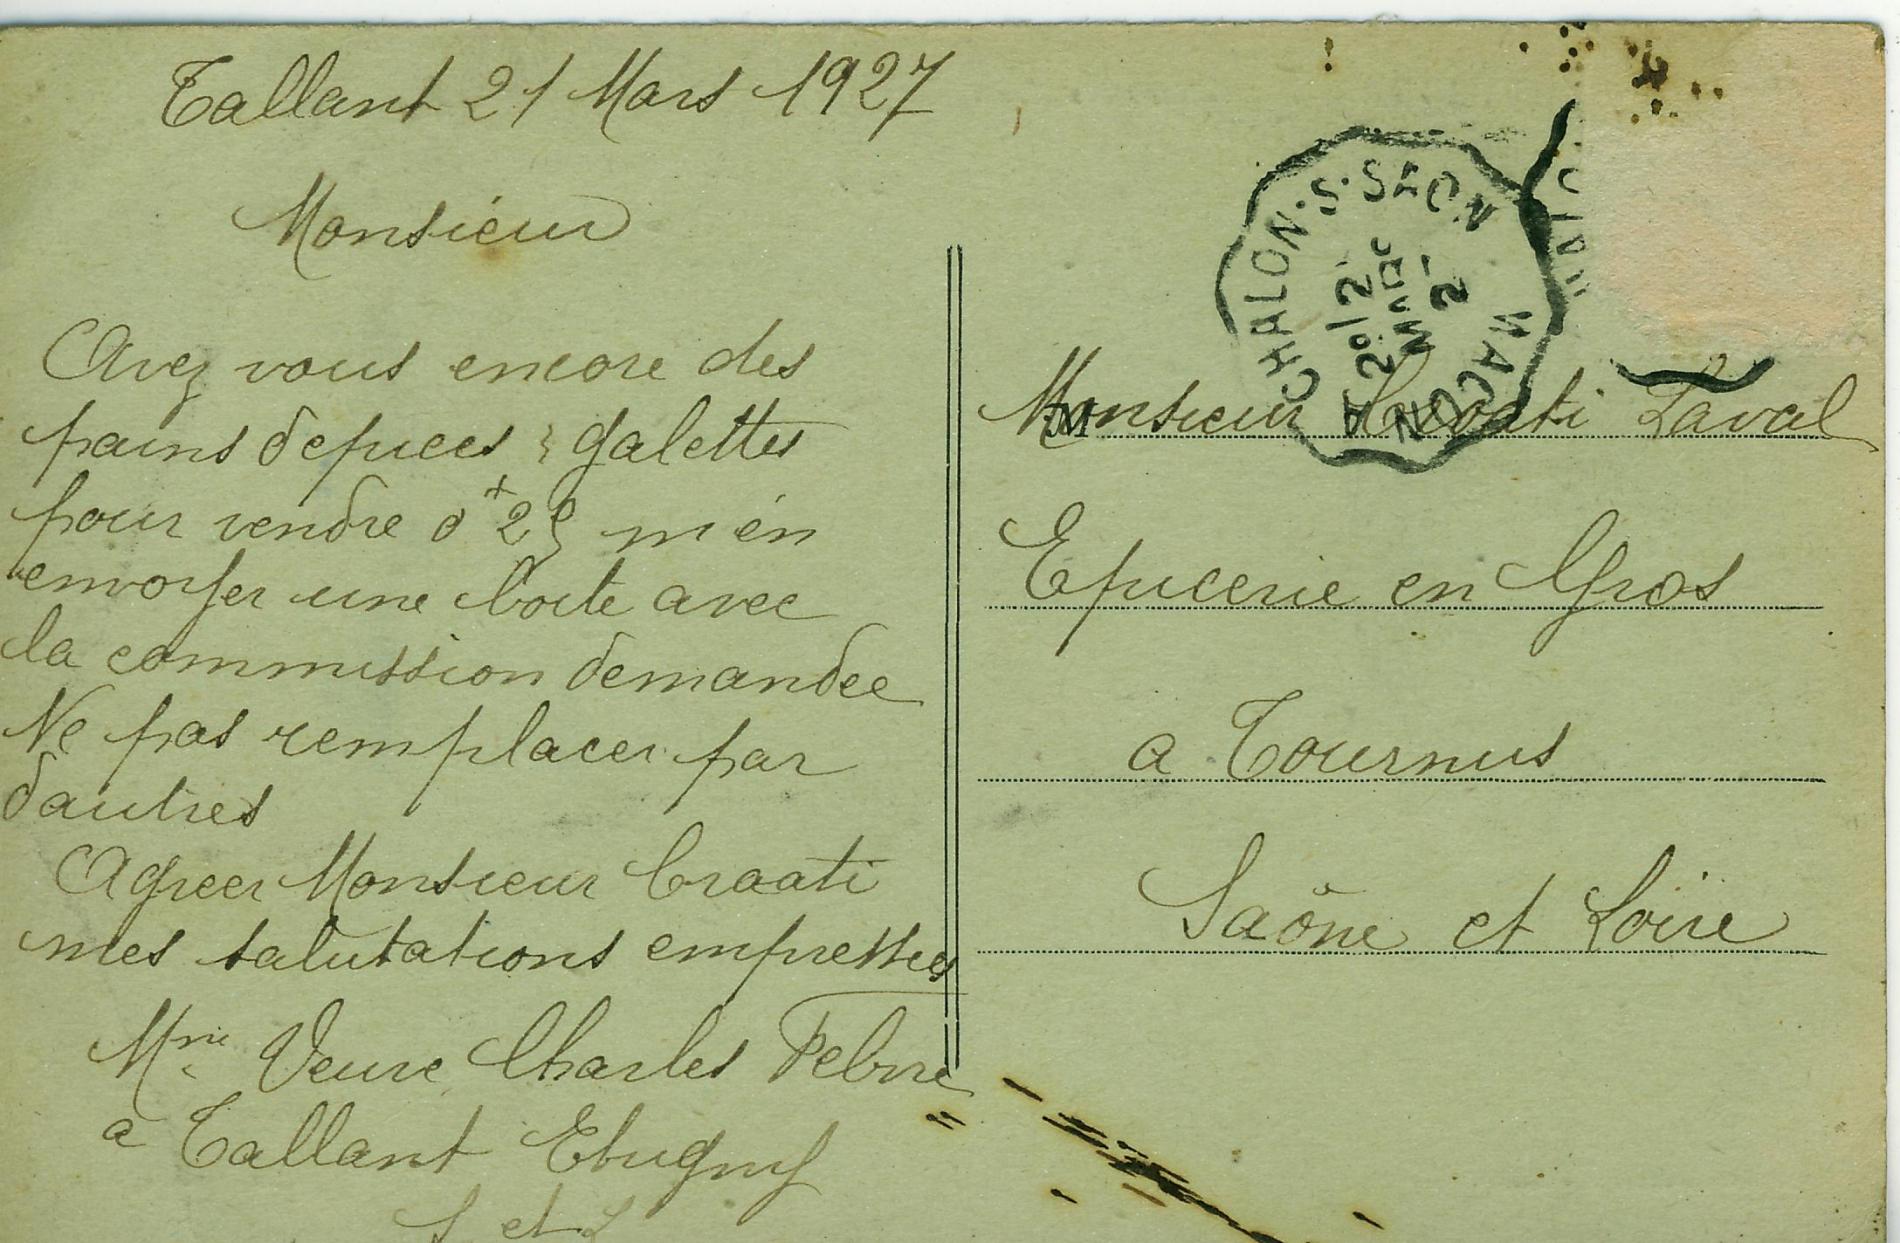 Tallant 21 Mars 1927
Monsieur
Avez vous encore des
pains depices galettes
pour vendre 0+25 m'en
envoyer une boite avec
la commission demandee
Ne pas remplacer par
dautres
Agreer Monsieur Craati
mes salutations empressees
Mme Veuve Charles Febvre
a Tallant Etrigny
S et L
CHALON·S·SAON
MACON
M
Monsieur Laval
Epicerie en Gros
a Tournus
Saône et Loire